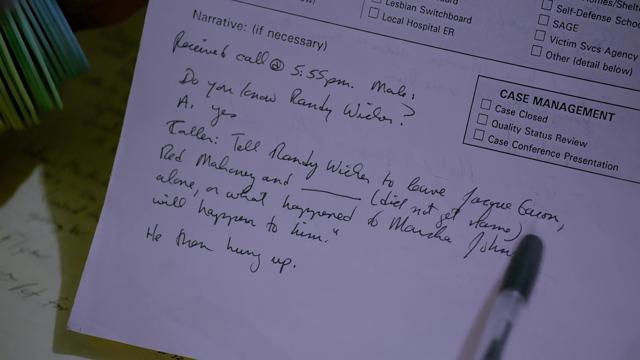 Lesbian Switchboard
Local Hospital ER
Self-Defense School
SAGE
Victim Svcs Agency
Other (detail below)
Narrative: (if necessary)
Received call @ 5:55pm. Male.
Do you know Randy Wicker?
A. yes
Caller: Tell Randy Wicker to leave Jacque Garon,
Red Mahoney and ______ (did not get name)
alone, or what happened to Marsha John
will happen to him."
He then hung up.
CASE MANAGEMENT
Case Closed
Quality Status Review
Case Conference Presentation